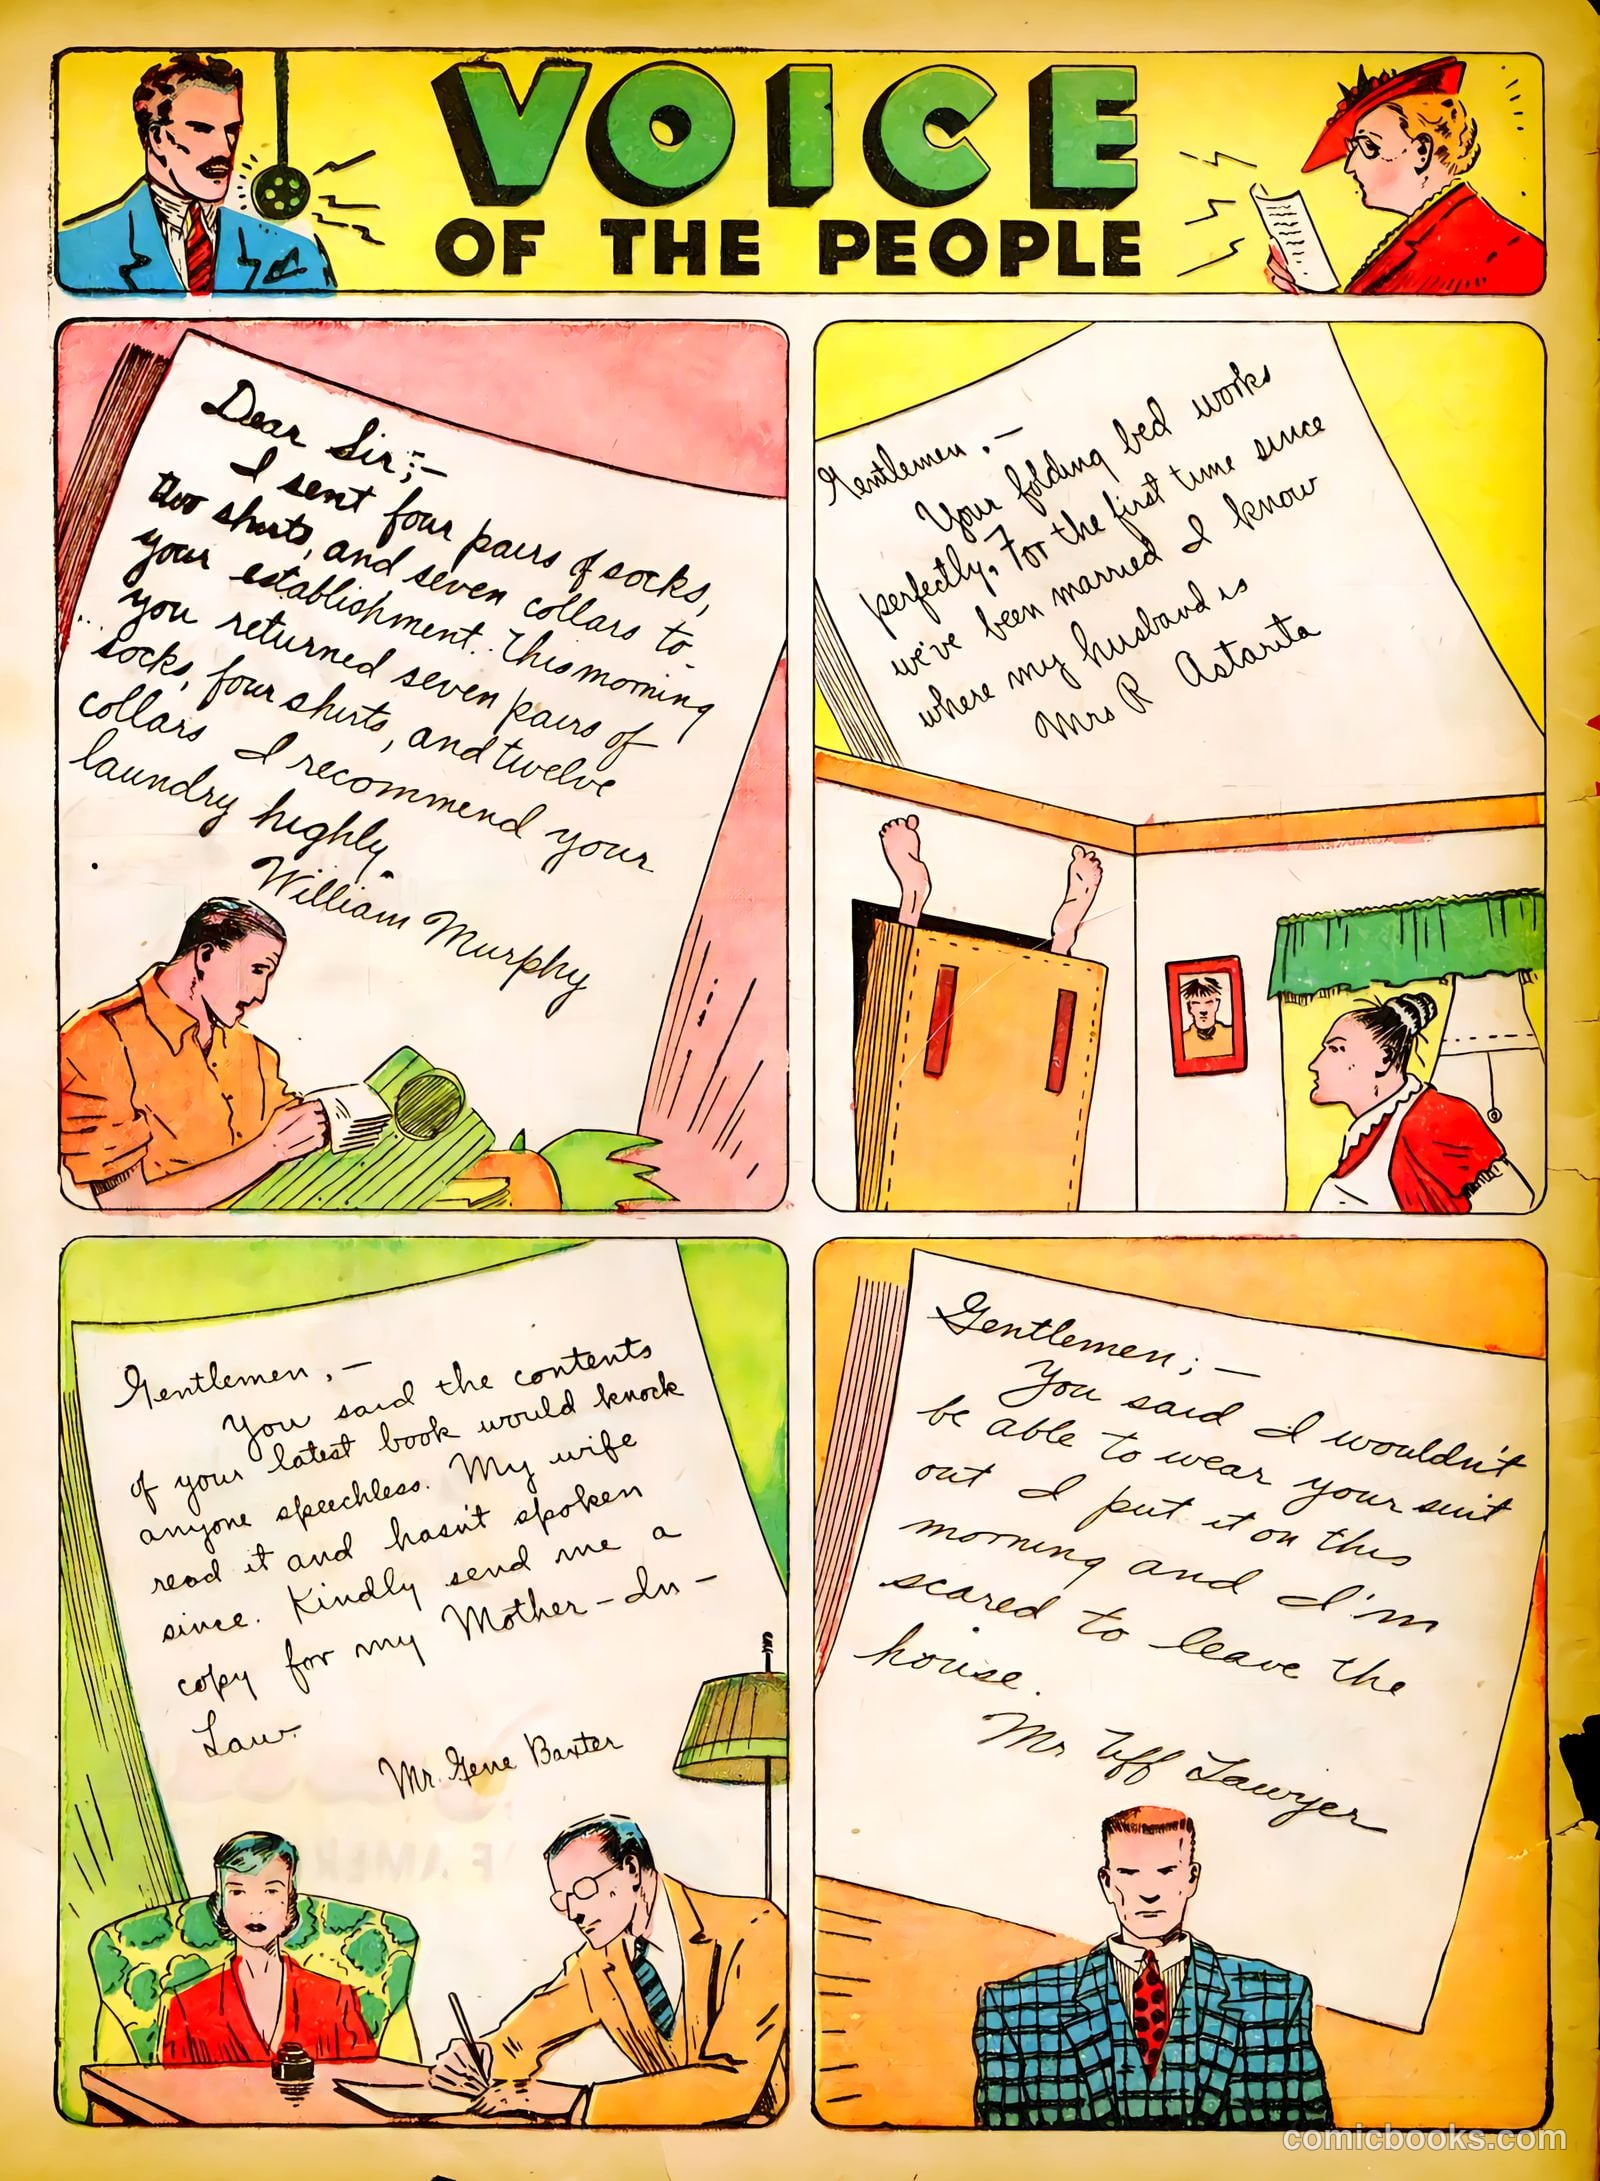 VOICE
OF THE PEOPLE
Dear Sir;-
I sent four pairs of socks,
two shirts, and seven collars to
your establishment. This morning
you returned seven pairs of
socks, four shirts, and twelve
collars I recommend your
laundry highly.
William Murphy
Gentlemen,-
Your folding bed works
perfectly. For the first time since
we've been married I know
where my husband is
Mrs R Astarita
Gentlemen,-
You said the contents
of your latest book would knock
anyone speechless. My wife
read it and hasn't spoken
since. Kindly send me a
copy for my Mother-In-
Law.
Mr. Gene Baxter
Gentlemen;-
You said I wouldn't
be able to wear your suit
out I put it on this
morning and I'm
scared to leave the
house.
Mr Uff Lawyer
comicbooks.com